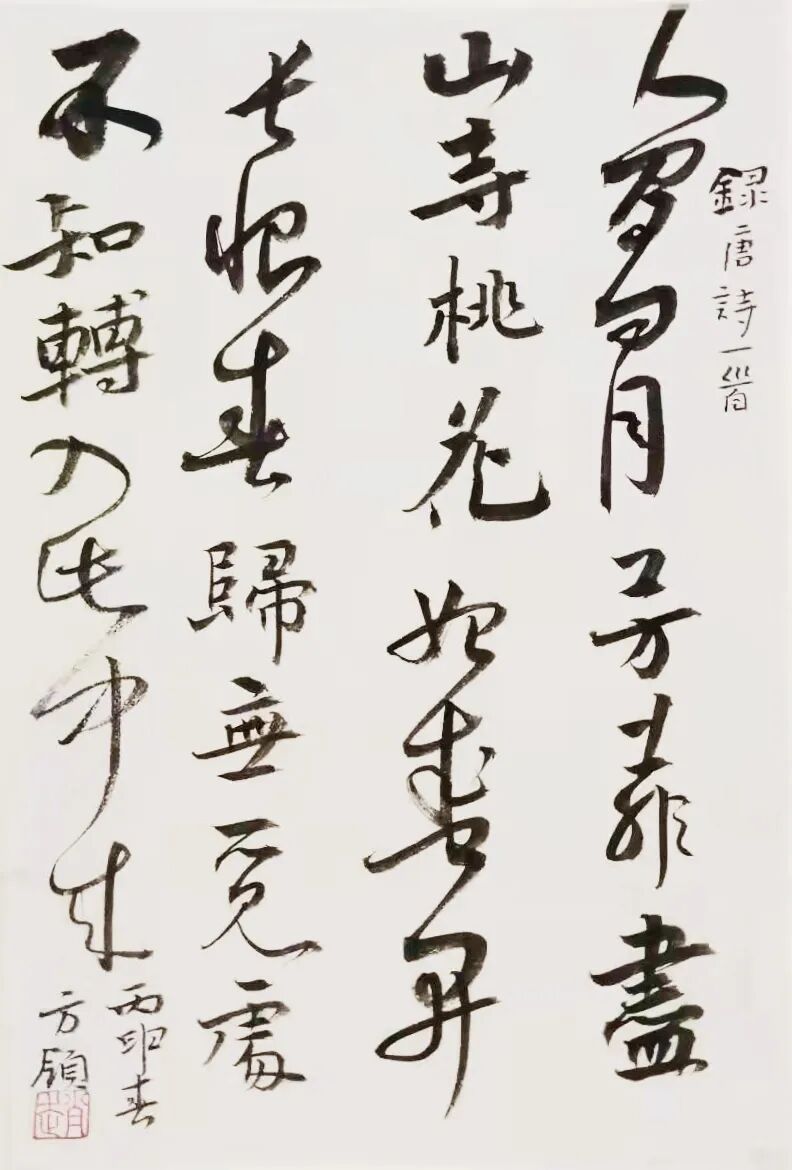 録唐詩一首
人間四月芳菲盡
山寺桃花始盛開
長恨春歸無覓處
不知轉入此中來
春
方